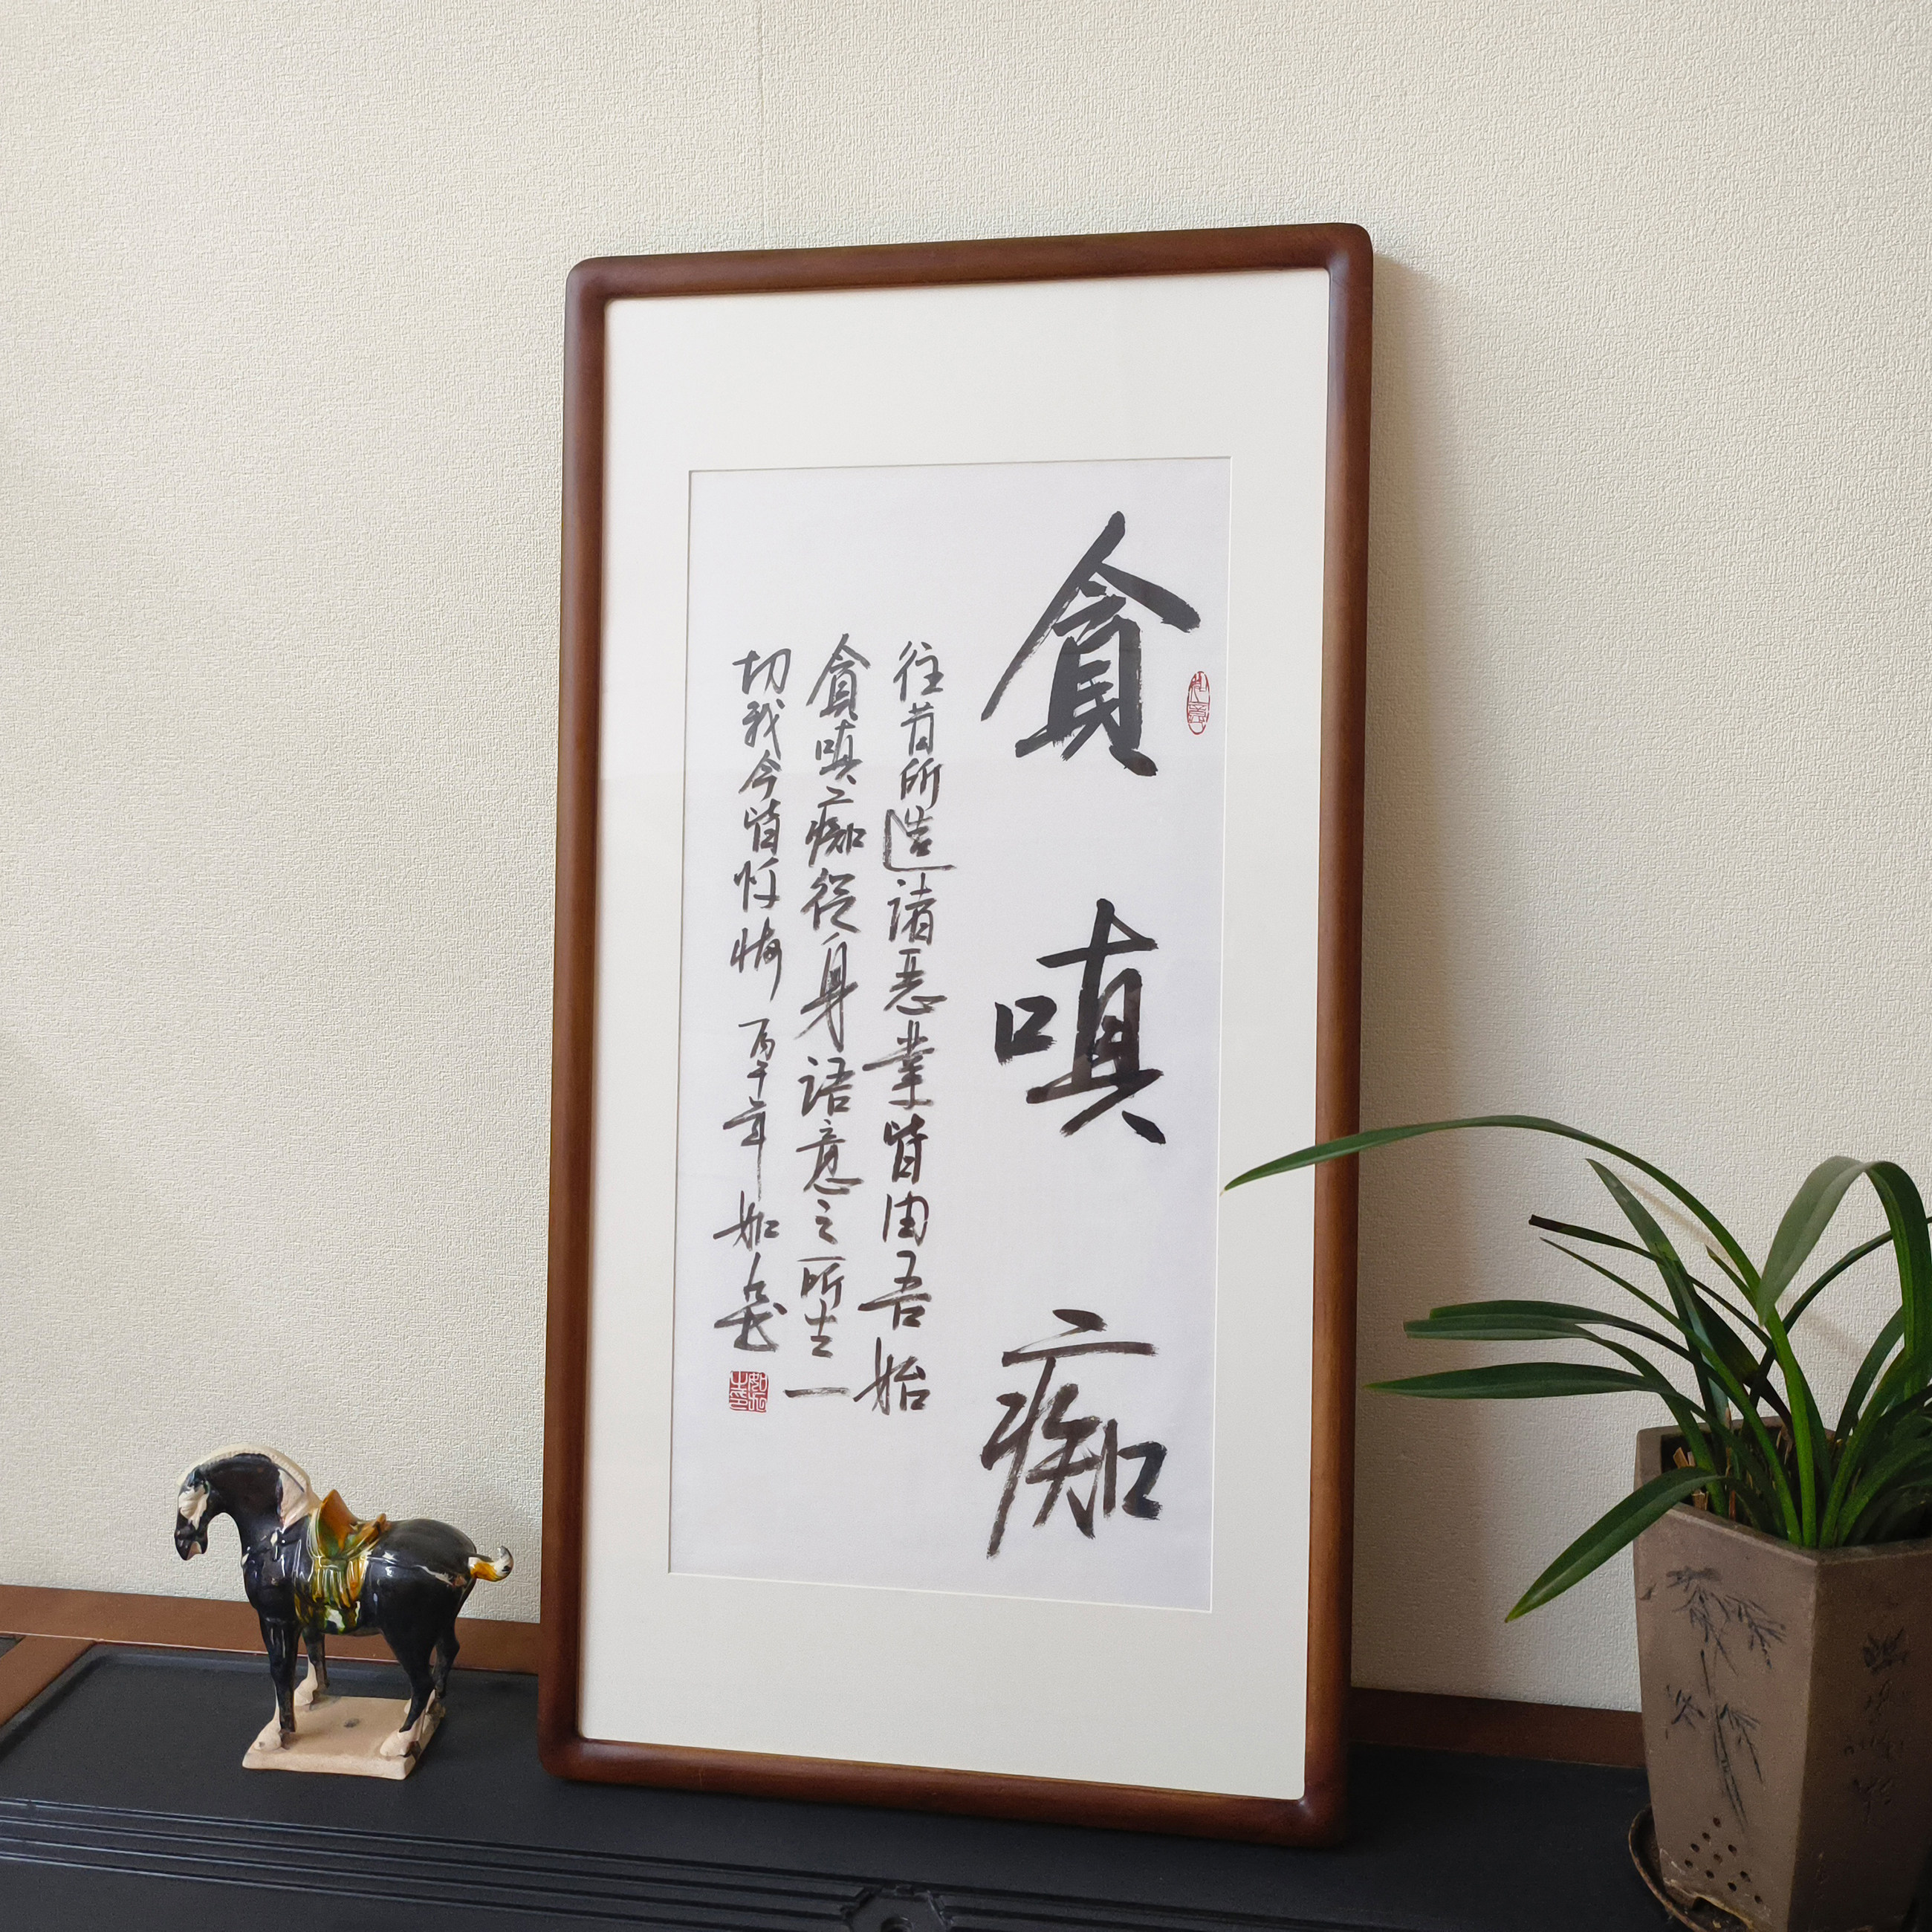 貪嗔痴
往昔所造诸恶業皆由吾始
貪嗔痴從身语意之所生一
切我今皆忏悔 丙午年 如